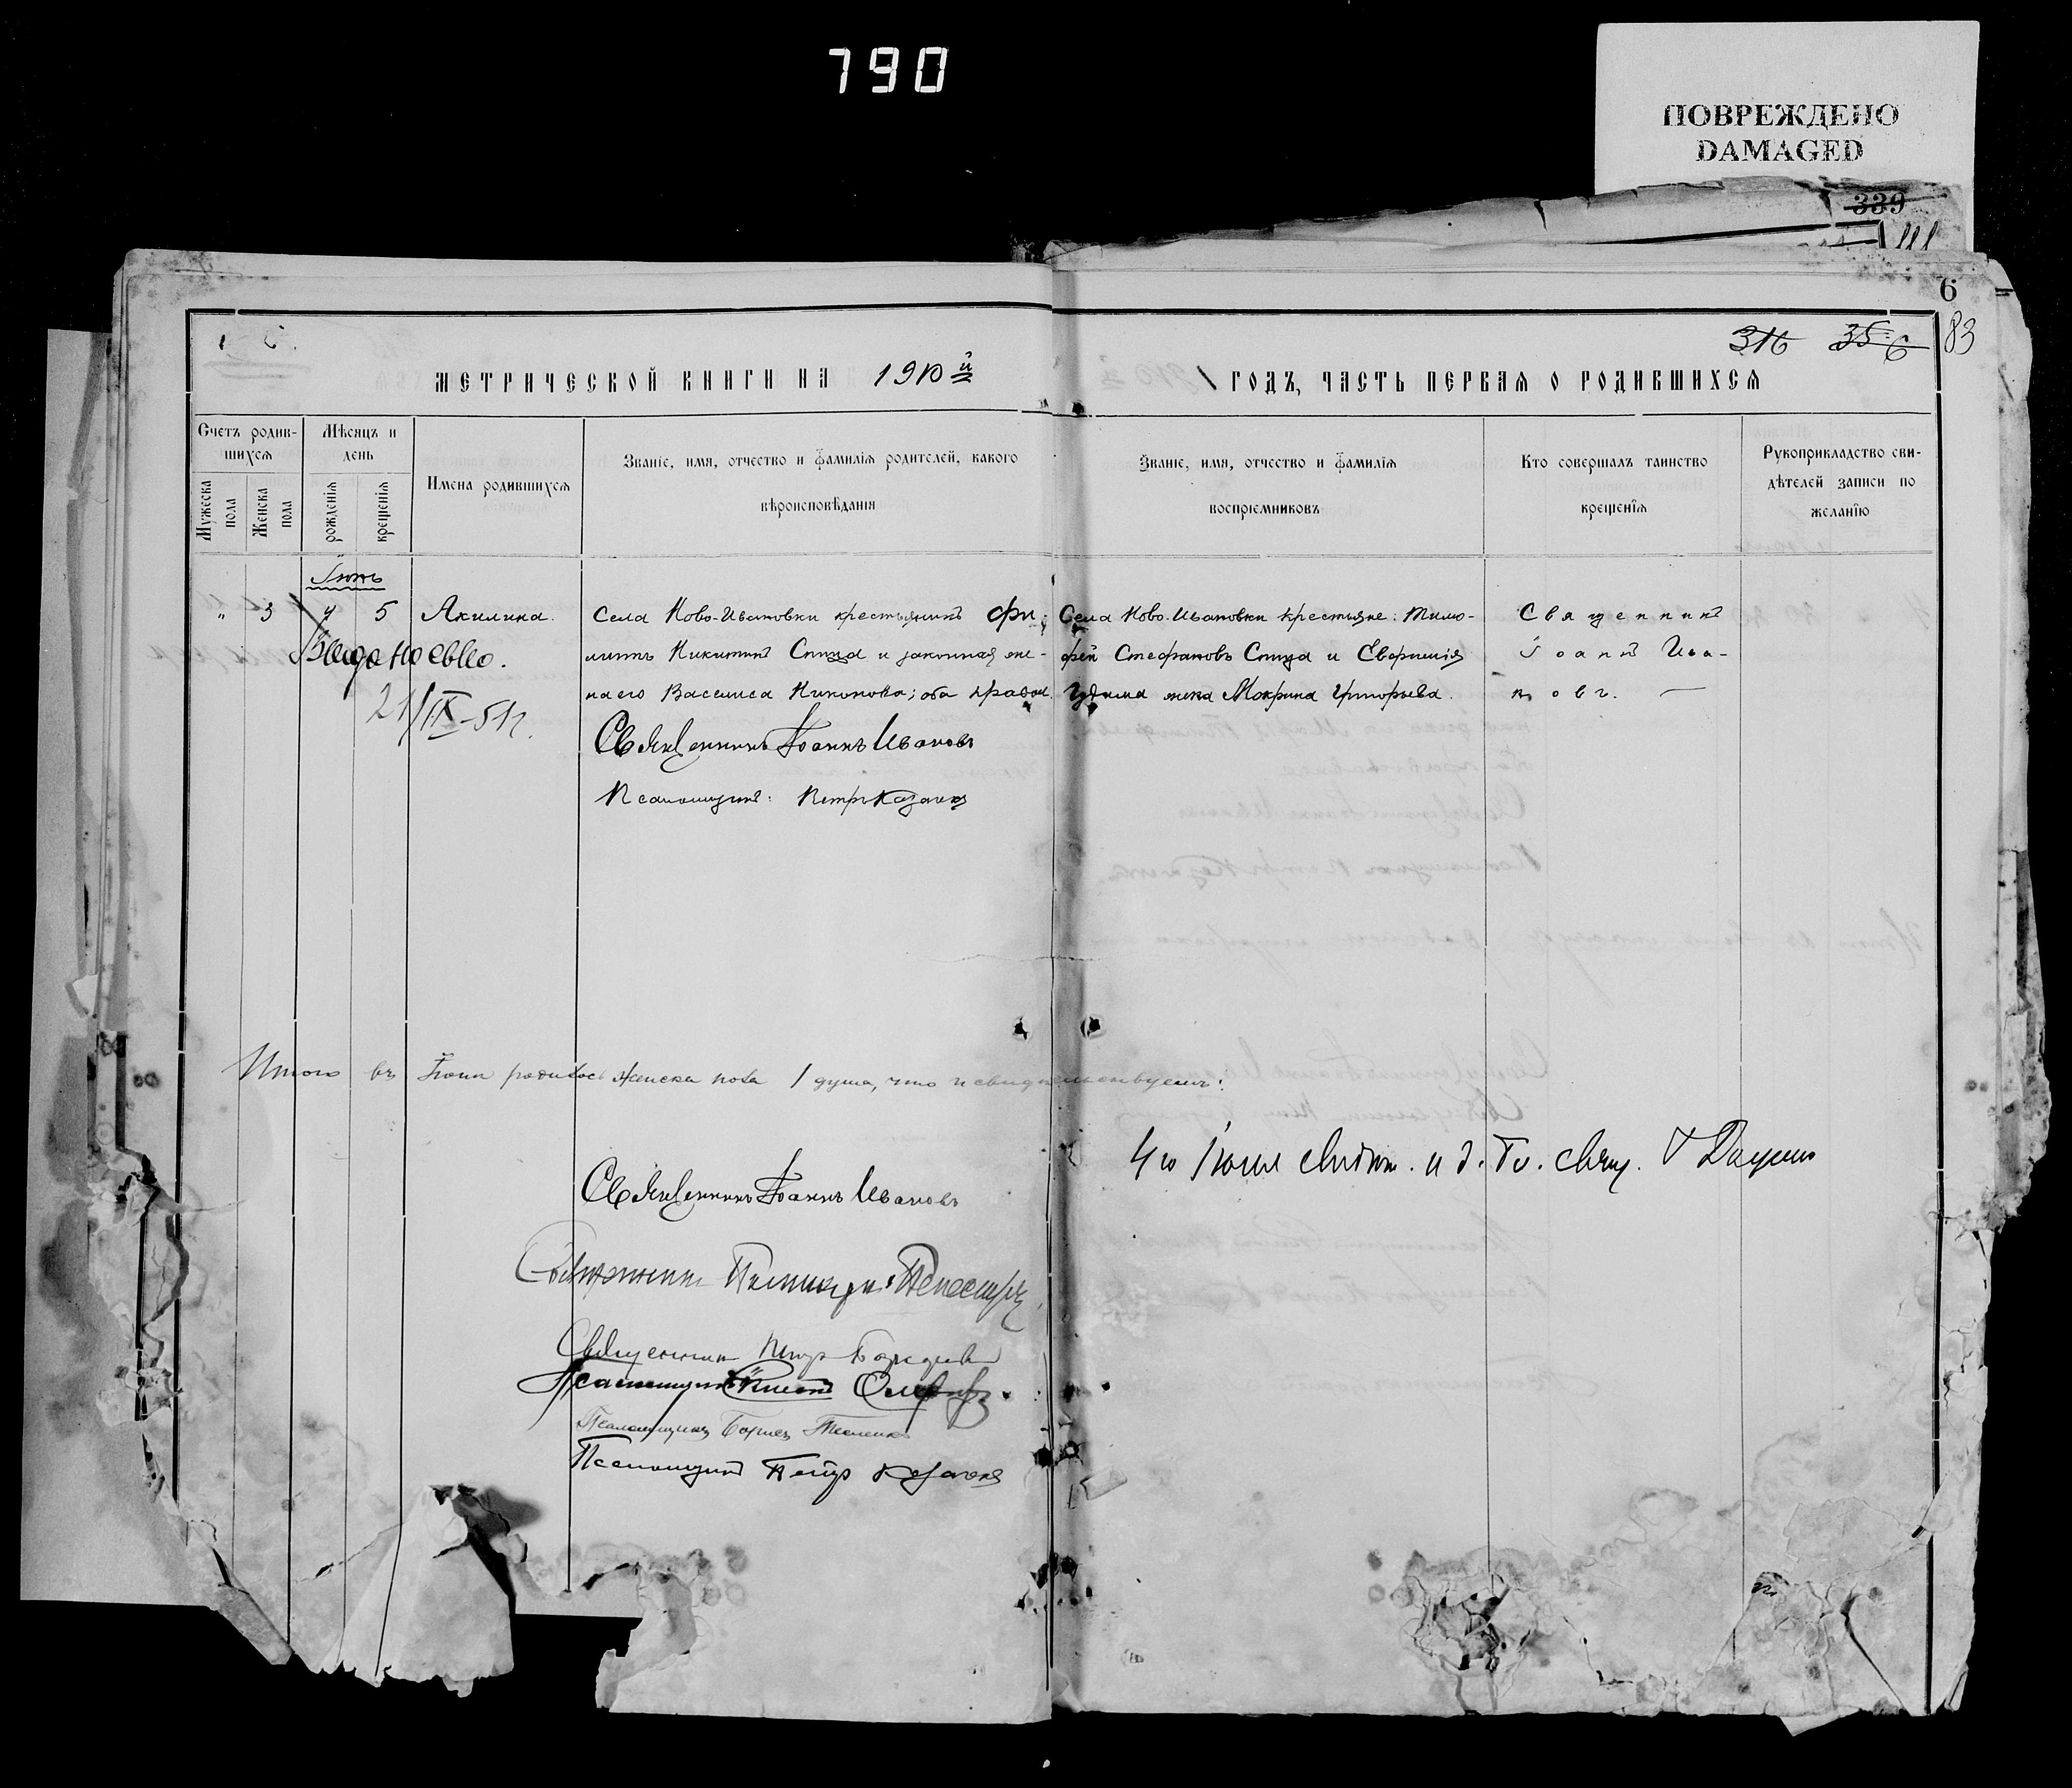 790
ПОВРЕЖДЕНО
DAMAGED
339
111
6
83
316 35
МЕТРИЧЕСКОЙ КНИГИ НА 1910й ГОДЪ, ЧАСТЬ ПЕРВАЯ О РОДИВШИХСЯ
Счетъ родив-
шихся
Мужеска пола
Женска пола
Мѣсяцъ и
день
рожденія
крещенія
Имена родившихся
Званіе, имя, отчество и фамилія родителей, какого
вѣроисповѣданія
Званіе, имя, отчество и фамилія
воспріемниковъ
Кто совершалъ таинство
крещенія
Рукоприкладство сви-
дѣтелей записи по
желанію
Іюнь
" 3 4 5 Акилина.
Села Ново-Ивановки крестьянинъ Фи-
липъ Никитинъ Спица и законная же-
на его Васелиса Никонова; оба правосл.
Села Ново-Ивановки крестьяне: Тимо-
фей Стефановъ Спица и Евфимія
жена Мокрина Григорьева.
Священникъ
Іоаннъ Ива-
новъ. —
Выдано св-во.
21/IX-51г.
Священникъ Іоаннъ Ивановъ
Псаломщикъ: Петръ Казачекъ
Итого въ Іюнѣ родилось женска пола 1 душа, что и свидѣтельствуемъ:
Священникъ Іоаннъ Ивановъ
Священникъ
Священникъ Петръ
Псаломщикъ
Псаломщикъ
Псаломщикъ Петръ Казачекъ